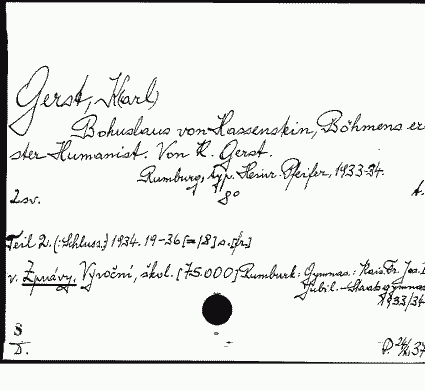 Gerst, K(arl)
Bohuslaus von Hassenstein, Böhmens er-
ster Humanist. Von K. Gerst.
Rumburg, typ. Heinr. Pfeifer, 1933-34.
2 sv. 8° A.
Teil 2. (:Schluss:) 1934. 19-36 [=18] s. [fr.]
v. Zprávy. Výroční, škol. [75.000] Rumburk: Gymnas.: Kais. Fr. Jos. I
Jubil.-Staatsgymnas
1933/34
S
D.